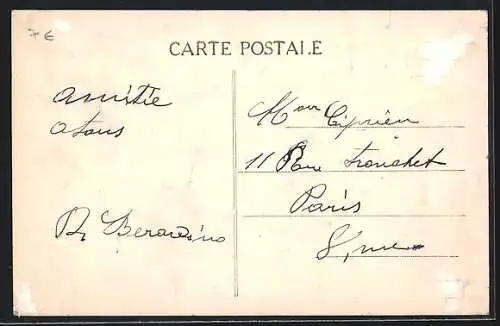 7 €
CARTE POSTALE
amitié
a tous
R Berardino
Mon Ciprien
11 Rue Tronchet
Paris
8, me